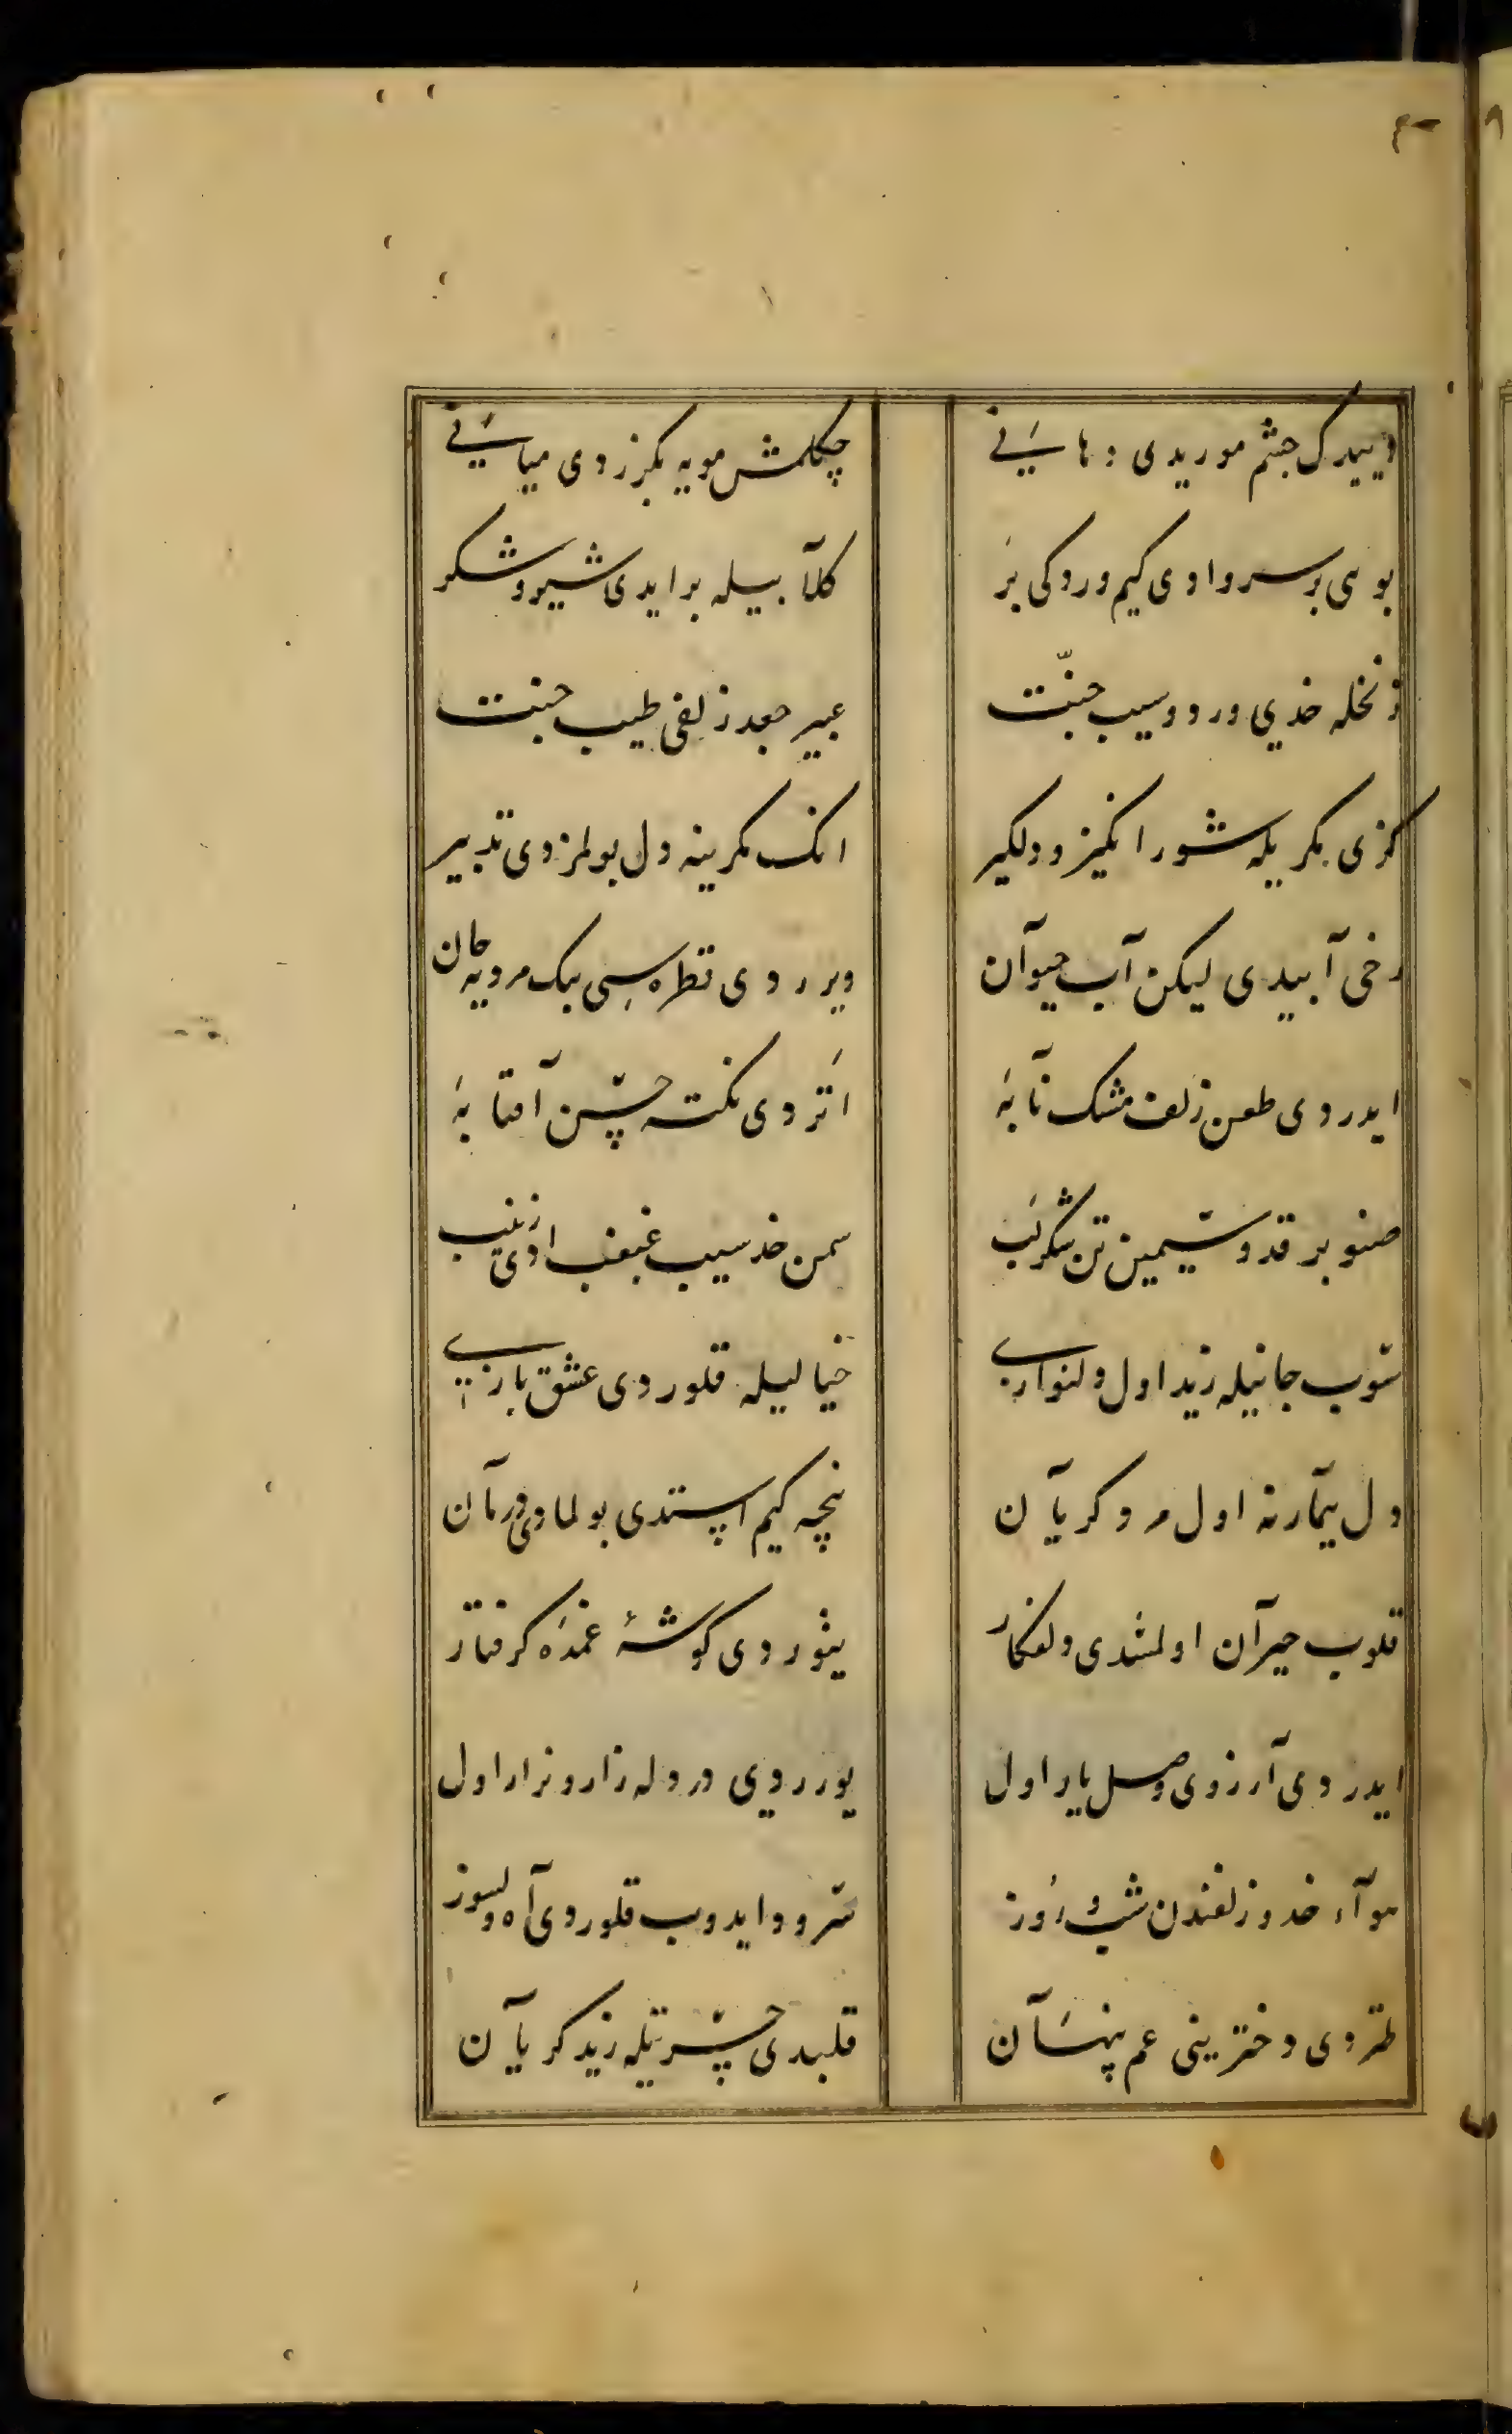 دییدک جشم موریدی دهانی
چکلمش مویه بکزردی میانی
بویی بر سرو اوی کیم وردکی بر
کلامیله برایدی شیر و شکر
نخله خدی ورد و سیب جنّت
عبیر جعد زلفی طیب جنت
کزی مکریله شورانکیز و دلکیر
انک مکرینه دل بولمزدی تدبیر
رخی آبیدی لیکن آب حیوان
ویرردی قطره سی بیک مرده یه جان
ایدردی طعن زلف مشک نابه
اتردی نکته حسن آفتابه
صنوبر قد و سیمین تن شکرلب
سمن خد سیب غبغب ادی زینب
سوب جانیله زید اول دلنوازی
خیالیله قلوردی عشق بازی
دل بیمارنه اول مرد کریان
نچه کیم استدی بولمادی درمان
قلوب حیران اولمشدی دلفکار
یتوردی کوشهٔ غمده کرفتار
ایدردی آرزوی وصل یار اول
یورردی دردله زار و نزار اول
هوآء خد و زلفندن شب و روز
سرود ایدوب قلوردی آه دلسوز
طتردی دخترینی عم پنهان
قلبدی حسرتیله زید کریان